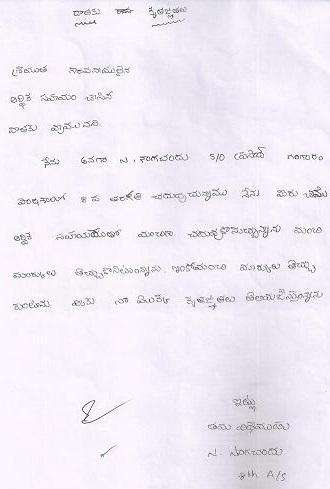 దాతకు కృతజ్ఞతలు
శ్రీయుత గౌరవనీయులైన
ఆర్థిక సహాయం చేసిన
దాతకు వ్రాయునది.
నేను అనగా న. S/O గంగారాం
8 వ తరగతి చదువుచున్నాము నేను మీరు
ఆర్థిక సహాయముతో మంచిగా చదువుకొనుచున్నాను మంచి
మార్కులు తెచ్చుకొనుచున్నాను. ఇంకామంచి మార్కులు తెచ్చు
కుంటాను మీకు నా యొక్క కృతజ్ఞతలు తెలియజేస్తున్నాను
ఇట్లు
తమ విధేయుడు
న.
8th A/S